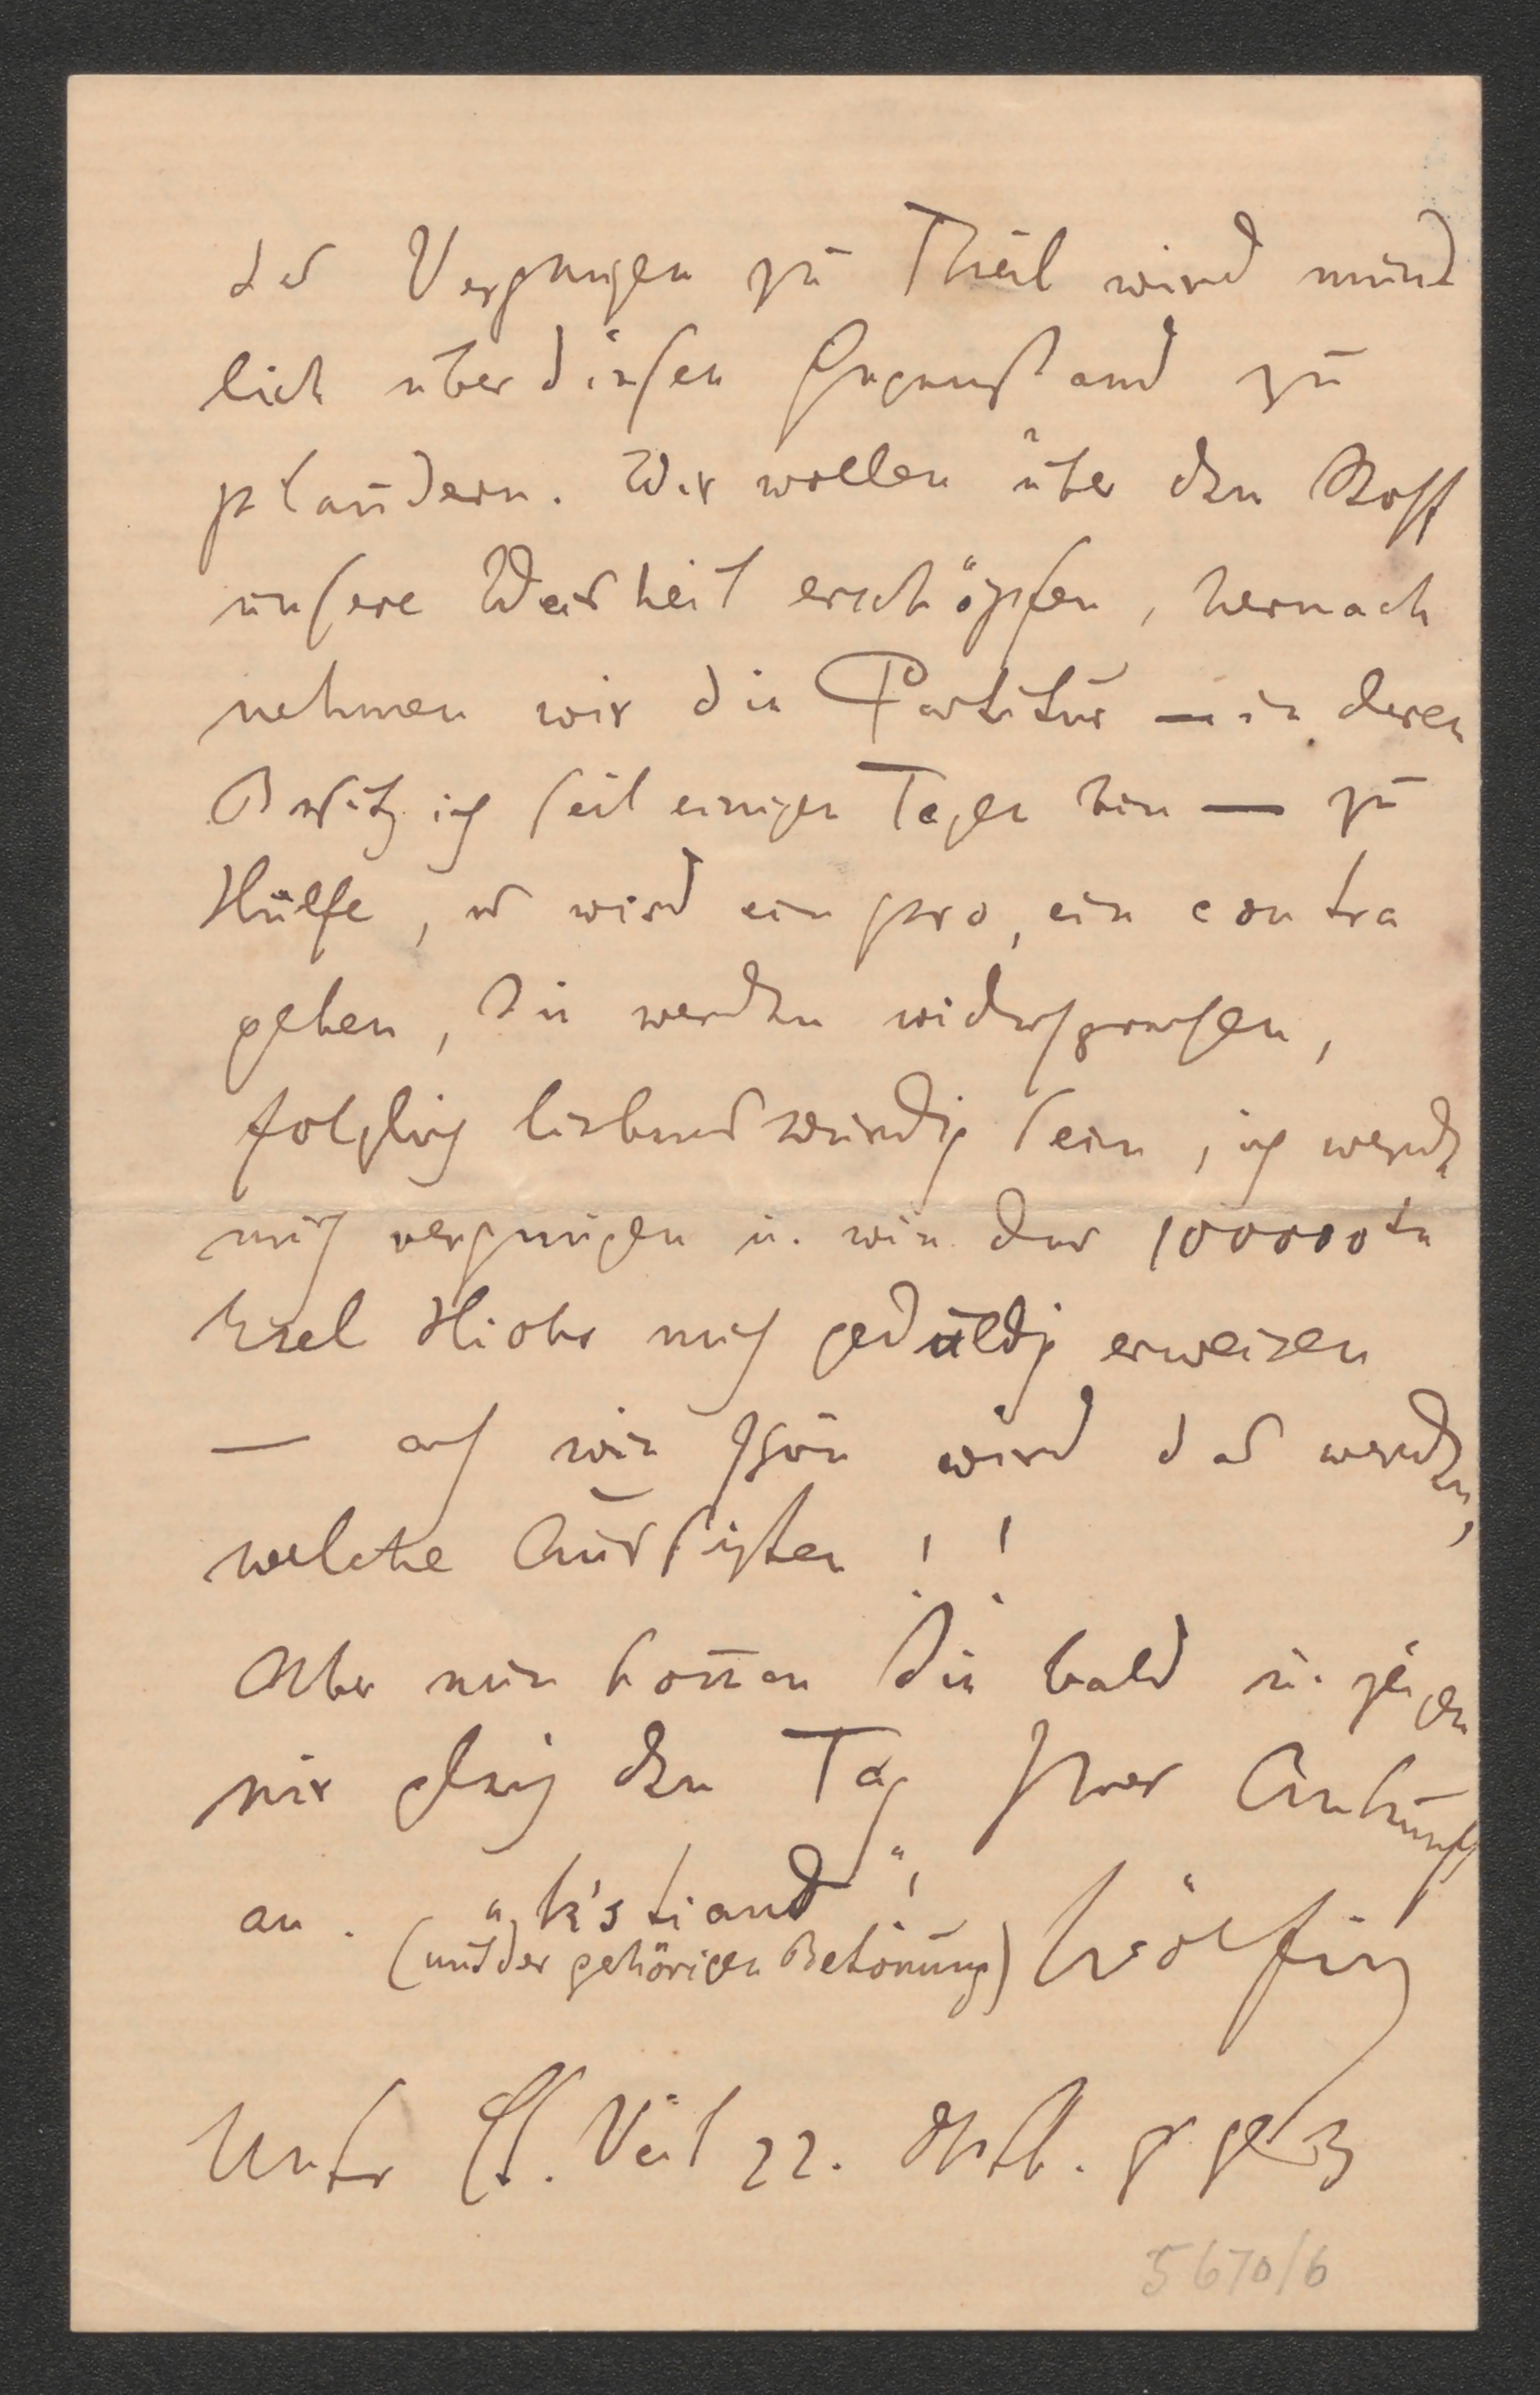 das Vergnügen zu Theil wird münd
lich über diesen Gegenstand zu
plaudern. Wir wollen über den Stoff
unsere Weisheit erschöpfen, hernach
nehmen wir die Partitur — in deren
Besitz ich seit einigen Tagen bin — zu
Hülfe, es wird ein pro, ein contra
geben, Sie werden widersprechen,
folglich liebenswürdig sein, ich werde
mich vergnügen u. wie der 100000te
Esel Hiobs mich geduldig erweisen
— ach wie schön wird das werden,
welche Aussichten!!
Aber nun kommen Sie bald u. zeigen
mir gleich den Tag Ihrer Ankunft
an. „k's tiand"!
(mit der gehörigen Betonung) Wölfing
Unter St. Veit 22.
5670/6